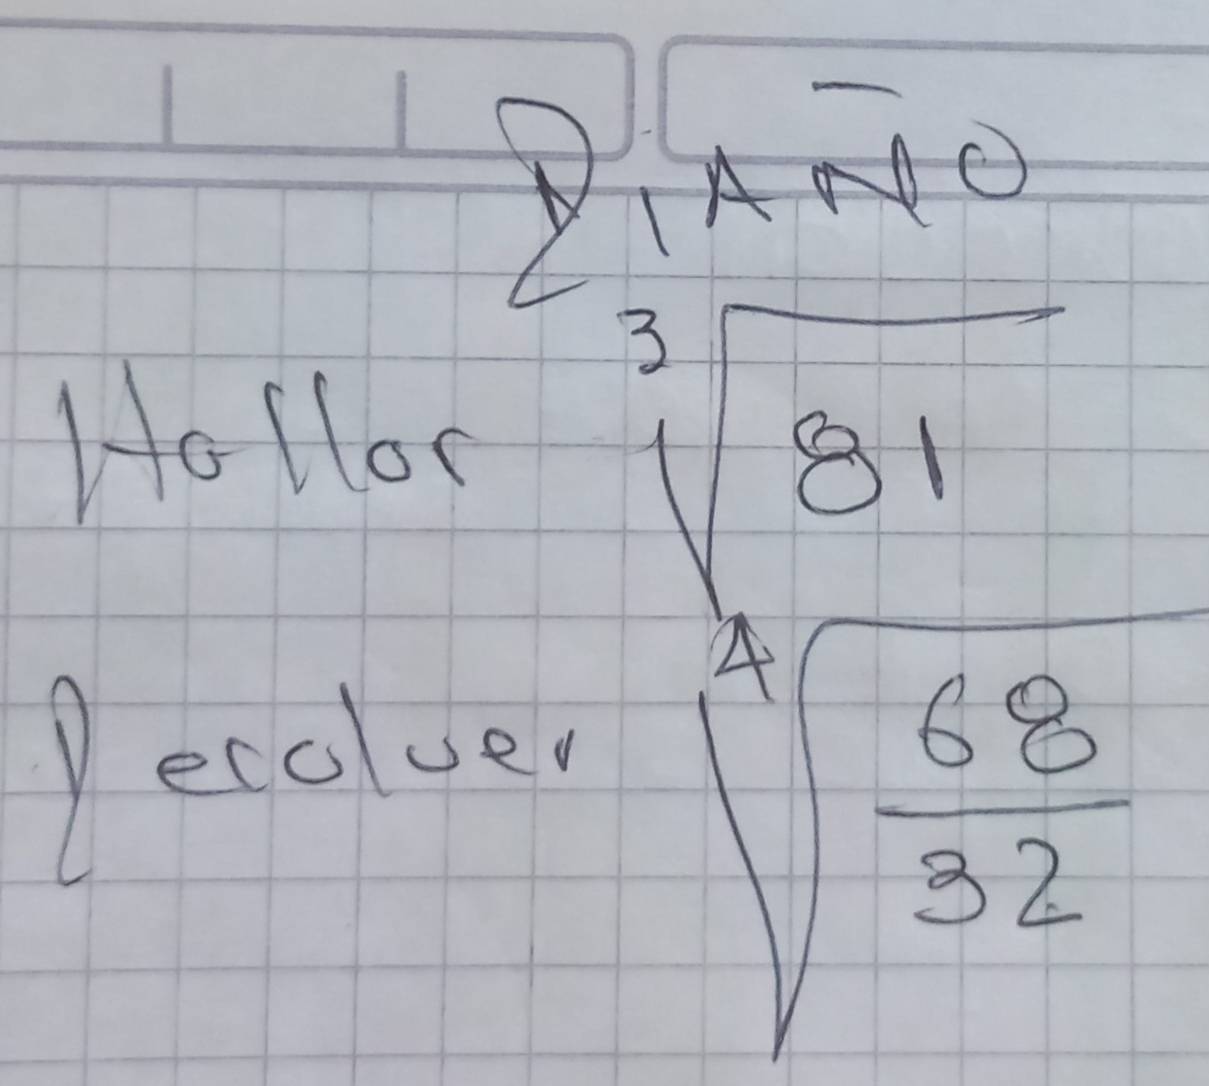 DIAÑO
Hallar ∛81
Resolver ∜(68/32)